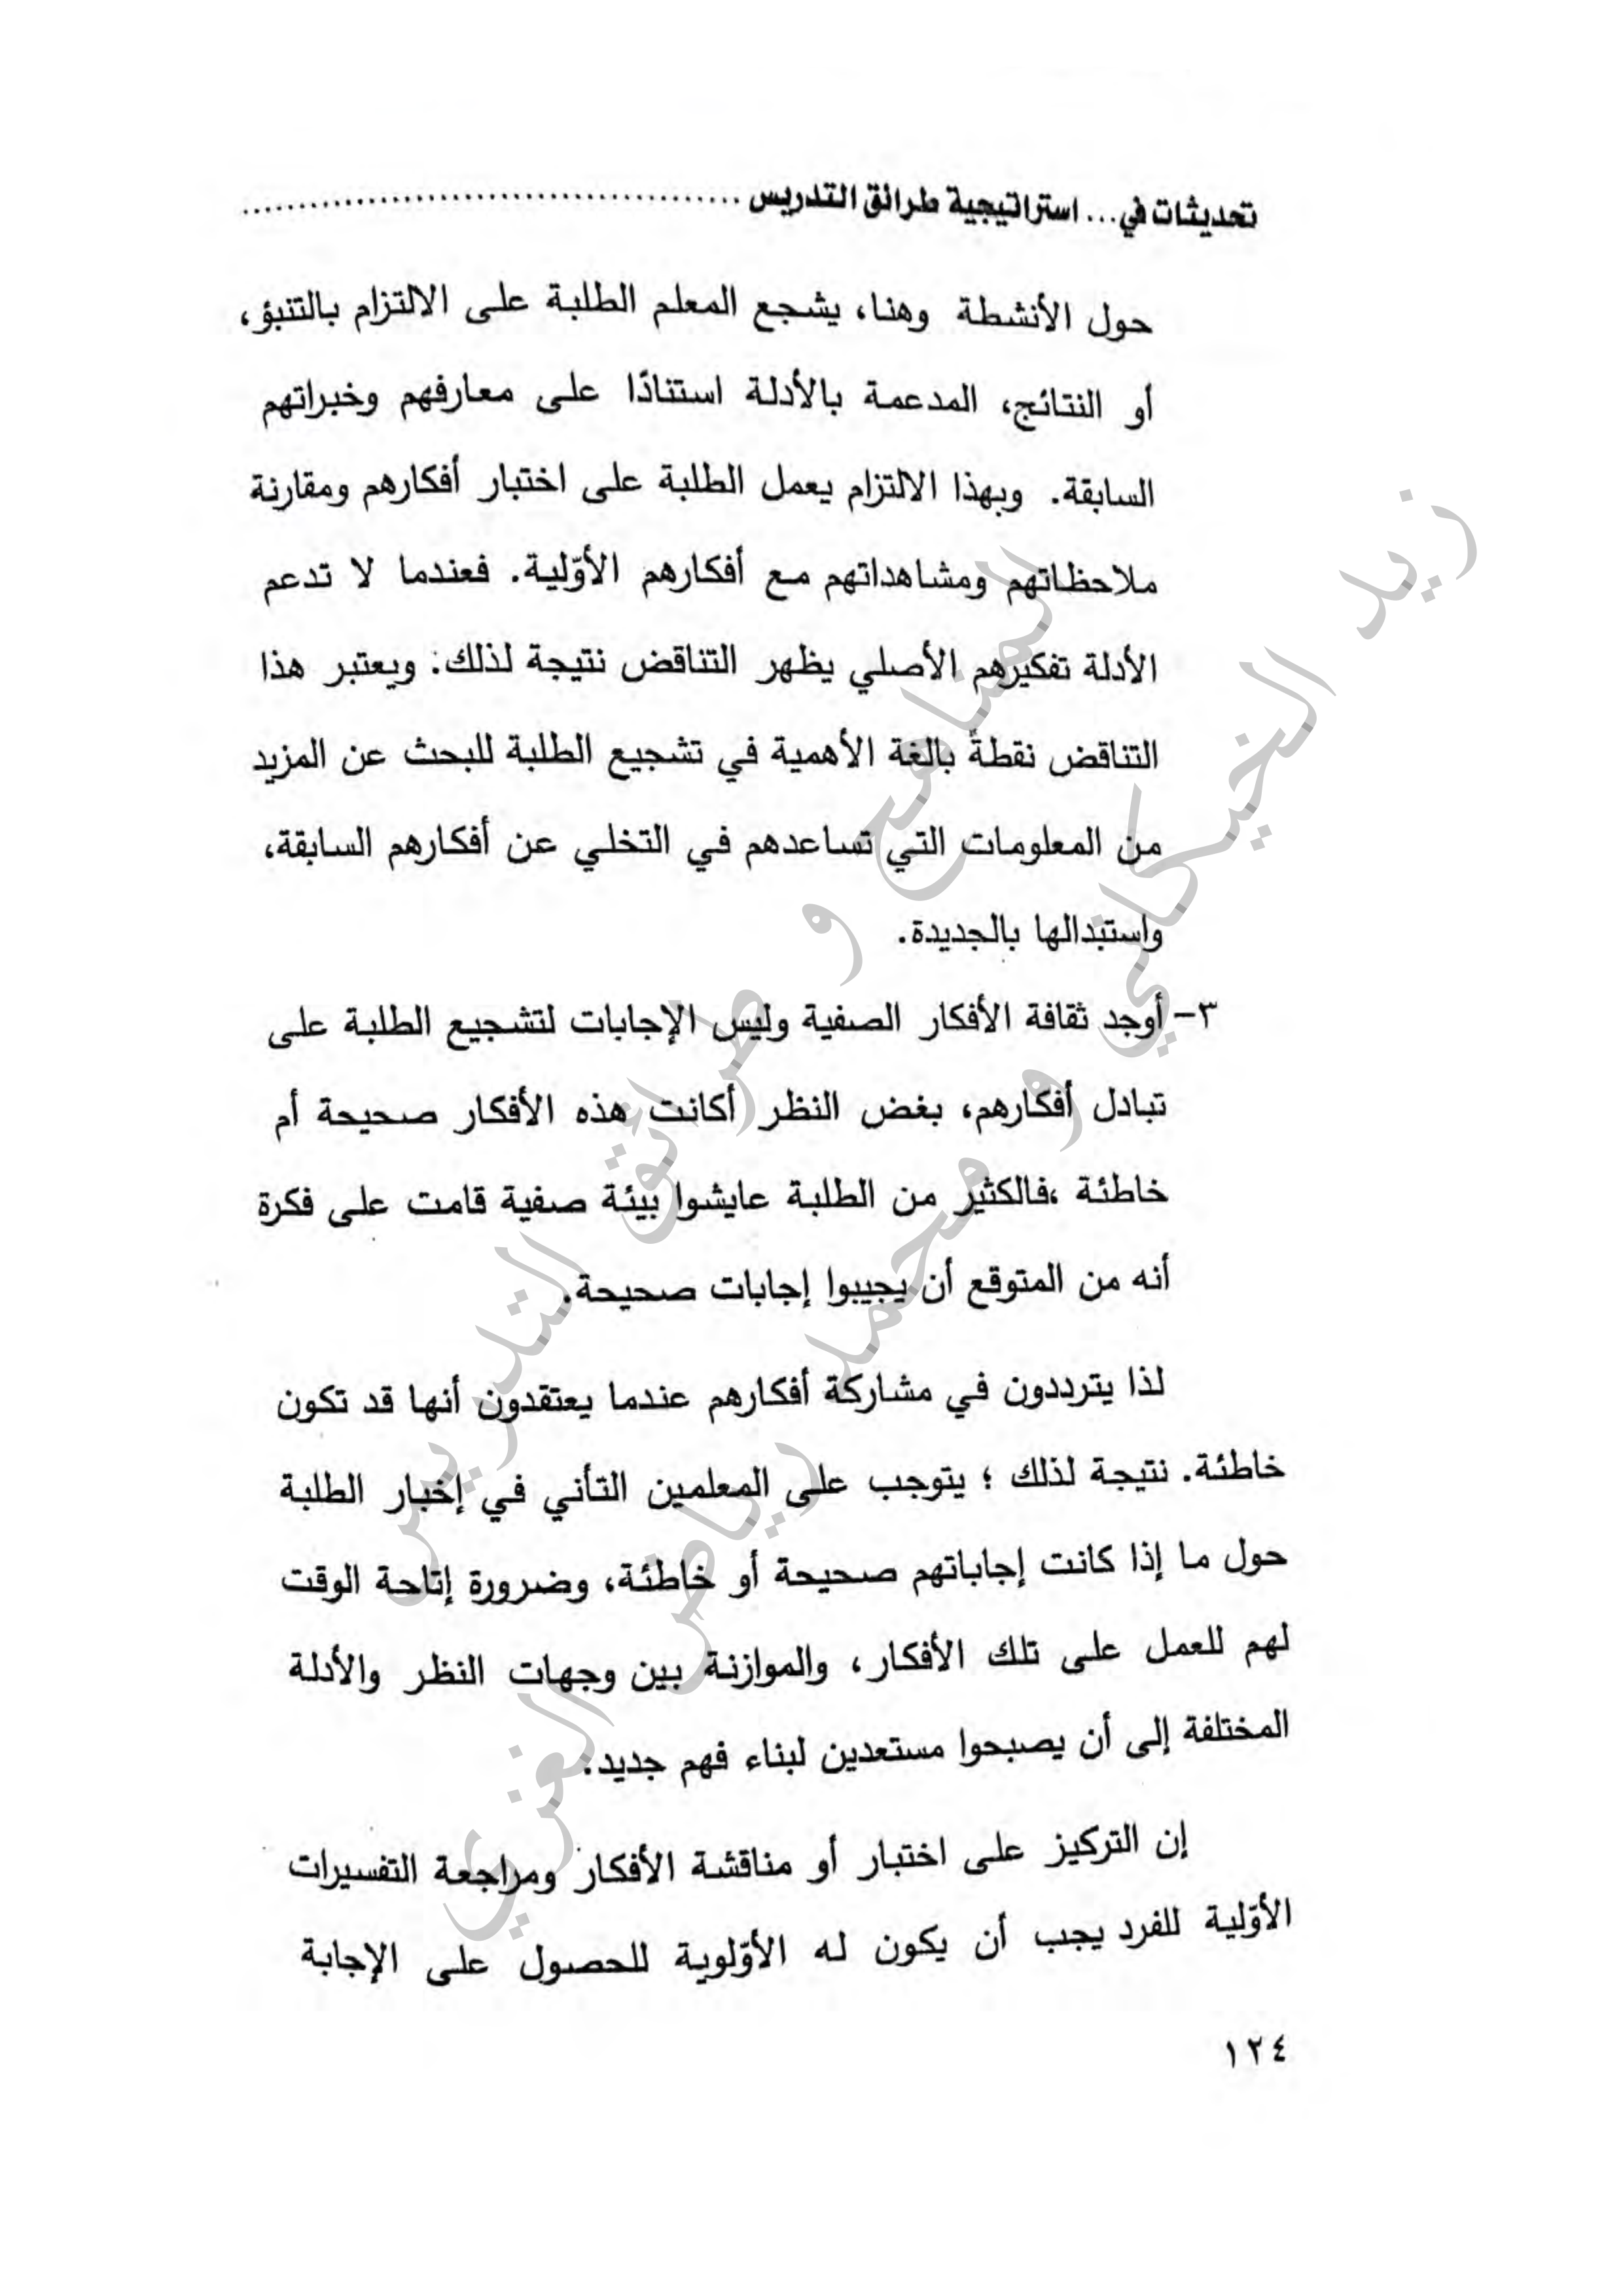 تحديثات في... استراتيجية طرائق التدريس ................................................
حول الأنشطة وهنا، يشجع المعلم الطلبة على الالتزام بالتنبؤ،
أو النتائج، المدعمة بالأدلة استنادًا على معارفهم وخبراتهم
السابقة. وبهذا الالتزام يعمل الطلبة على اختبار أفكارهم ومقارنة
ملاحظاتهم ومشاهداتهم مع أفكارهم الأوّلية. فعندما لا تدعم
الأدلة تفكيرهم الأصلي يظهر التناقض نتيجة لذلك. ويعتبر هذا
التناقض نقطةً بالغة الأهمية في تشجيع الطلبة للبحث عن المزيد
من المعلومات التي تساعدهم في التخلي عن أفكارهم السابقة،
واستبدالها بالجديدة.
٣- أوجد ثقافة الأفكار الصفية وليس الإجابات لتشجيع الطلبة على
تبادل أفكارهم، بغض النظر أكانت هذه الأفكار صحيحة أم
خاطئة ،فالكثير من الطلبة عايشوا بيئة صفية قامت على فكرة
أنه من المتوقع أن يجيبوا إجابات صحيحة.
لذا يترددون في مشاركة أفكارهم عندما يعتقدون أنها قد تكون
خاطئة. نتيجة لذلك ؛ يتوجب على المعلمين التأني في إخبار الطلبة
حول ما إذا كانت إجاباتهم صحيحة أو خاطئة، وضرورة إتاحة الوقت
لهم للعمل على تلك الأفكار، والموازنة بين وجهات النظر والأدلة
المختلفة إلى أن يصبحوا مستعدين لبناء فهم جديد.
إن التركيز على اختبار أو مناقشة الأفكار ومراجعة التفسيرات
الأوّلية للفرد يجب أن يكون له الأوّلوية للحصول على الإجابة
١٢٤
المناهج و طرائق التدريس
زيد الخيكاني و محمد رياض الغزي